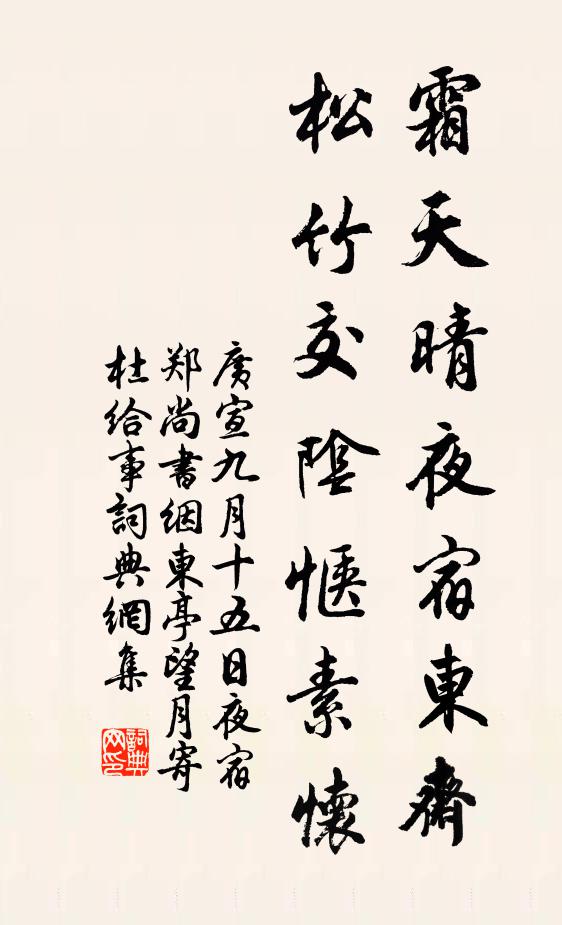 霜天晴夜宿東齋
松竹交陰愜素懷
廣宣九月十五日夜宿
郑尚書絪東亭望月寄
杜給事詞典網集
詞典
网印